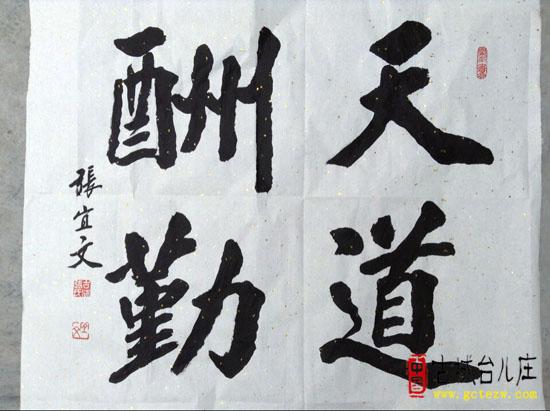 天道
酬勤
張宜文
中国
古城台儿庄
www.gctezw.com